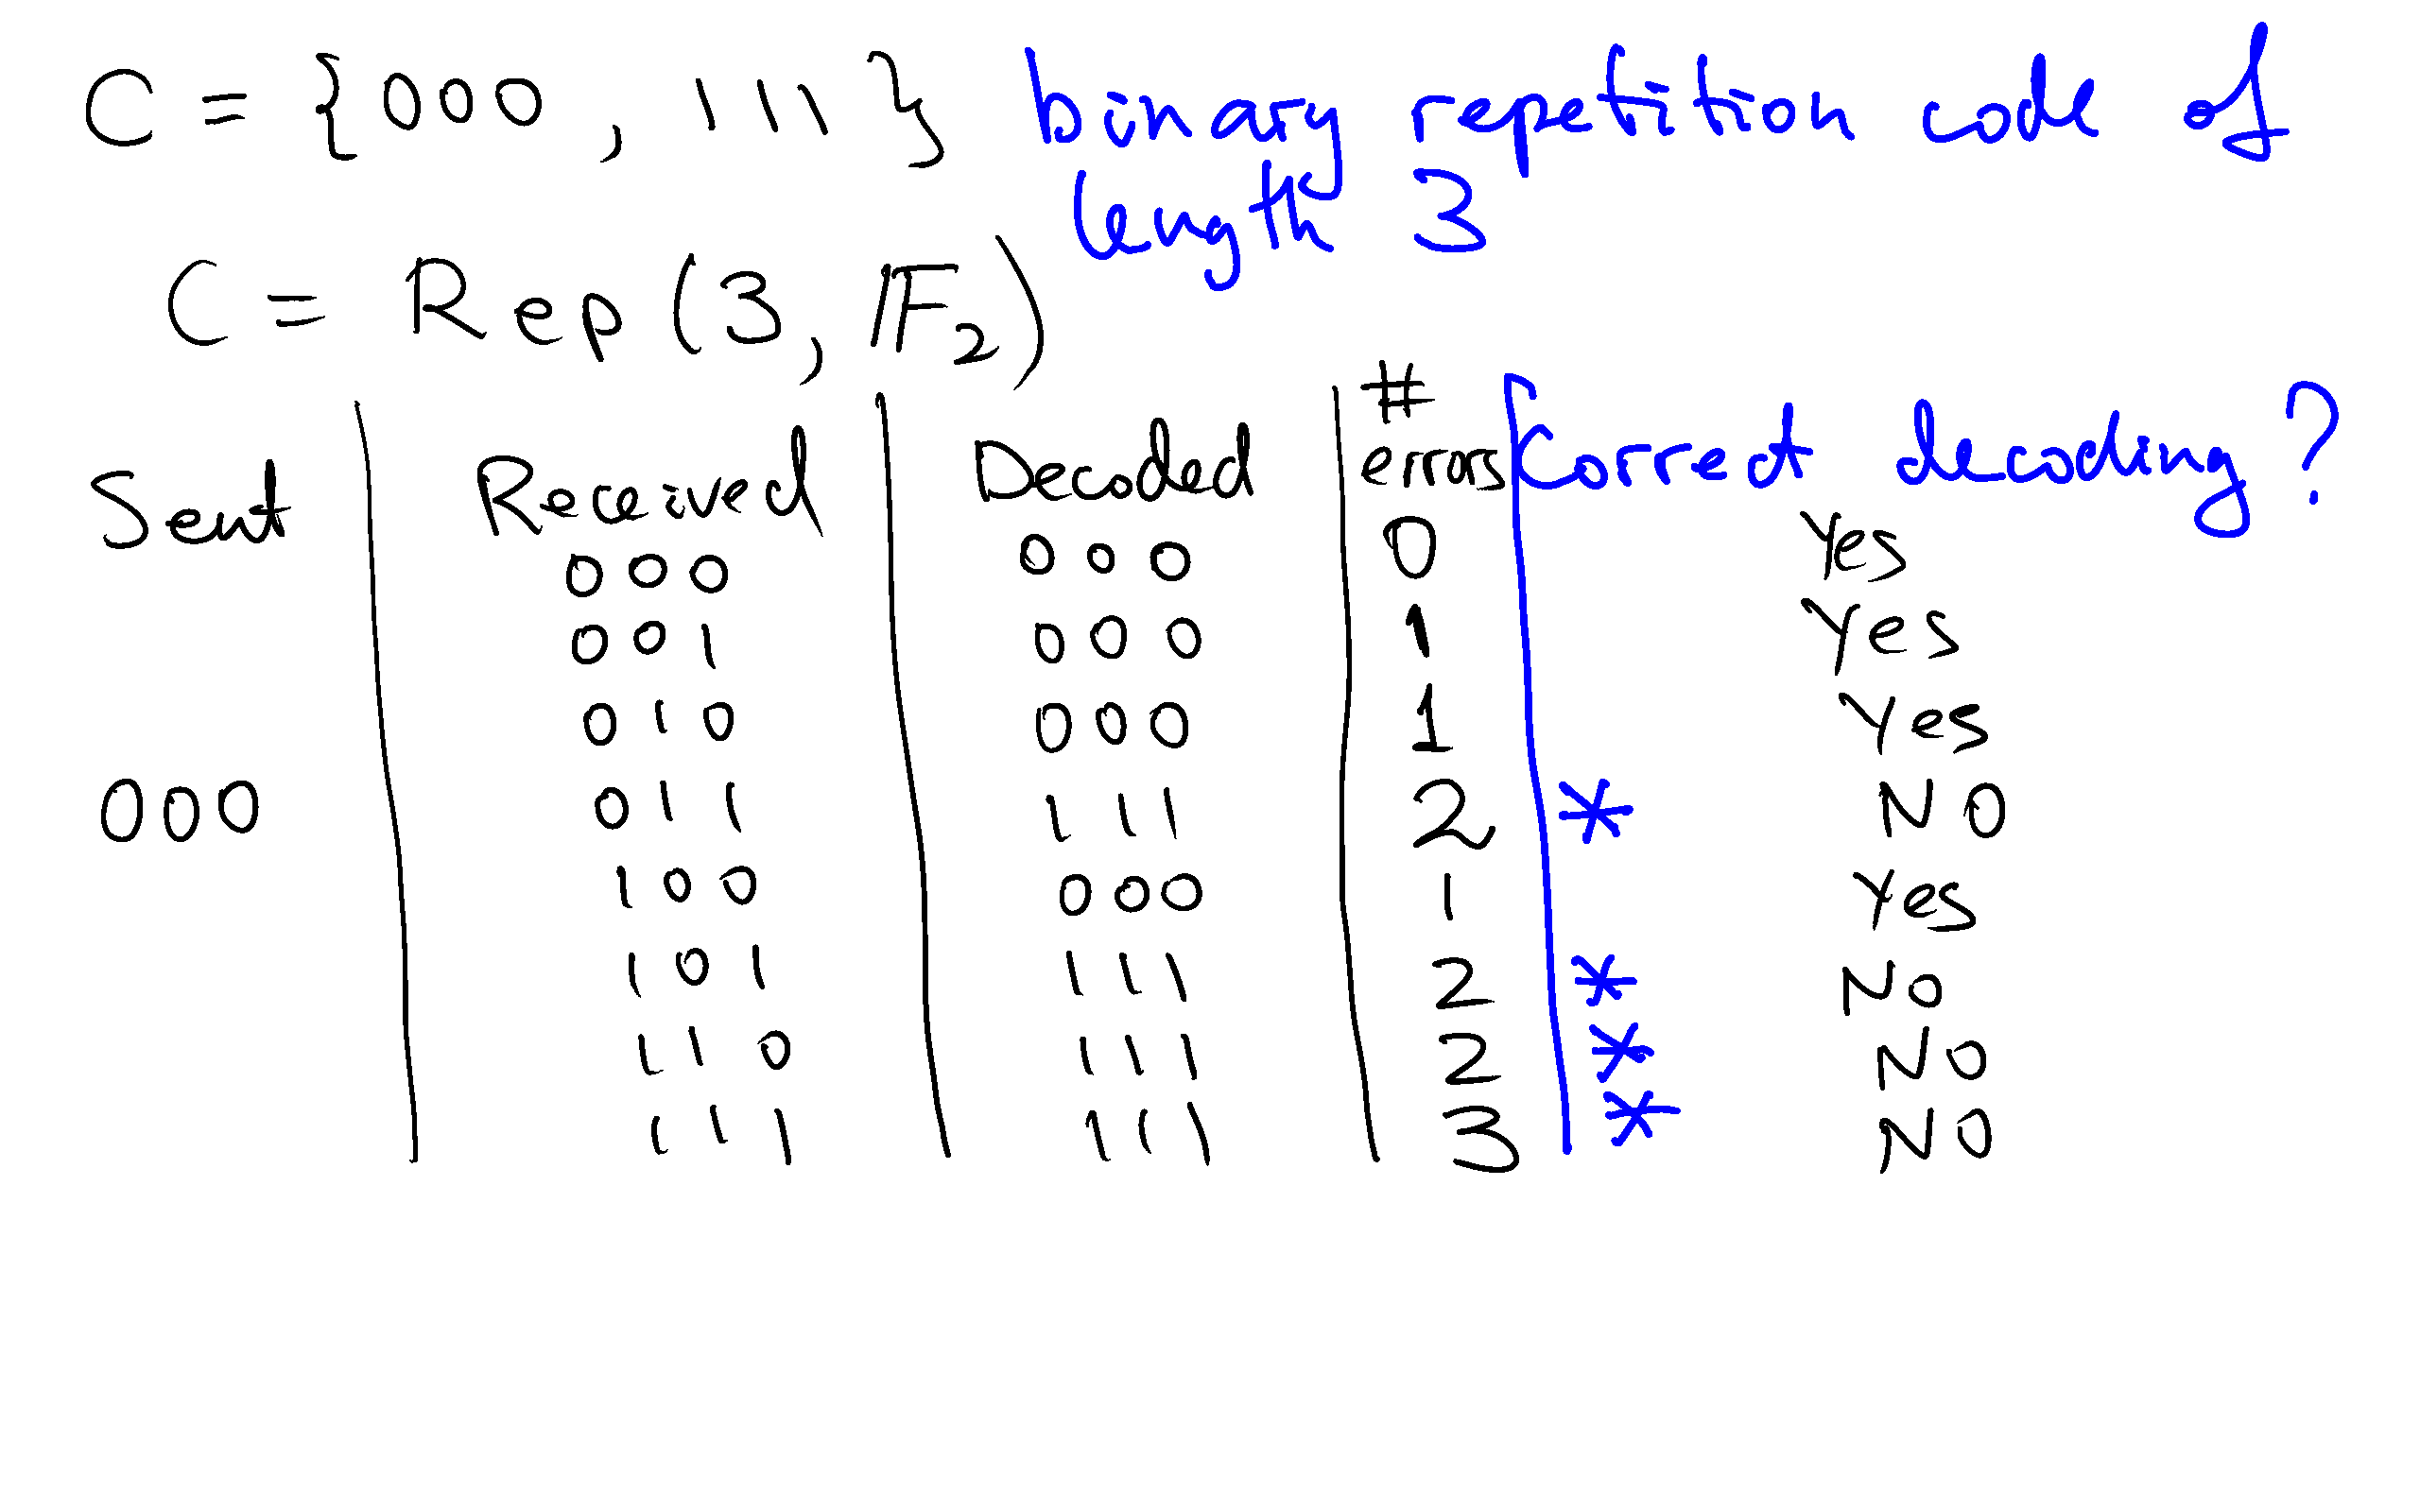 C = {000, 111} binary repetition code of
length 3
C = Rep (3, 𝔽₂)
Sent | Received | Decoded | # errors | Correct decoding?
000 000 0 Yes
001 000 1 Yes
010 000 1 Yes
000 011 111 2 * NO
100 000 1 Yes
101 111 2 * No
110 111 2 * NO
111 111 3 * NO